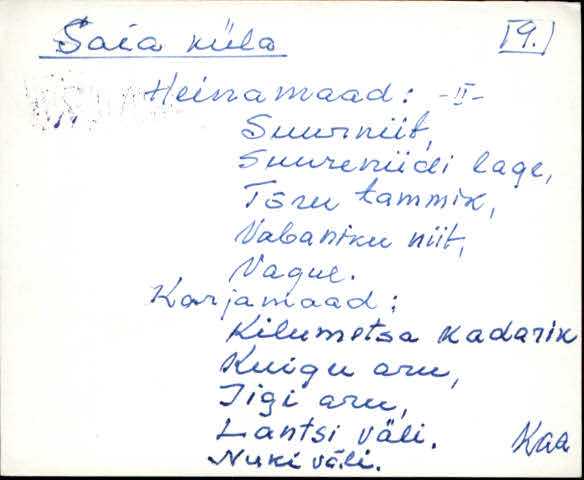 Saia küla [9.]
Heinamaad: -II-
Suurniit,
Suureniidi lage,
Tõru tammik,
Vabaniku niit,
Vague.
Karjamaad:
Kilumetsa kadarik
Kuigu aru,
Jigi aru,
Lantsi väli.
Nuki väli.
Kaa